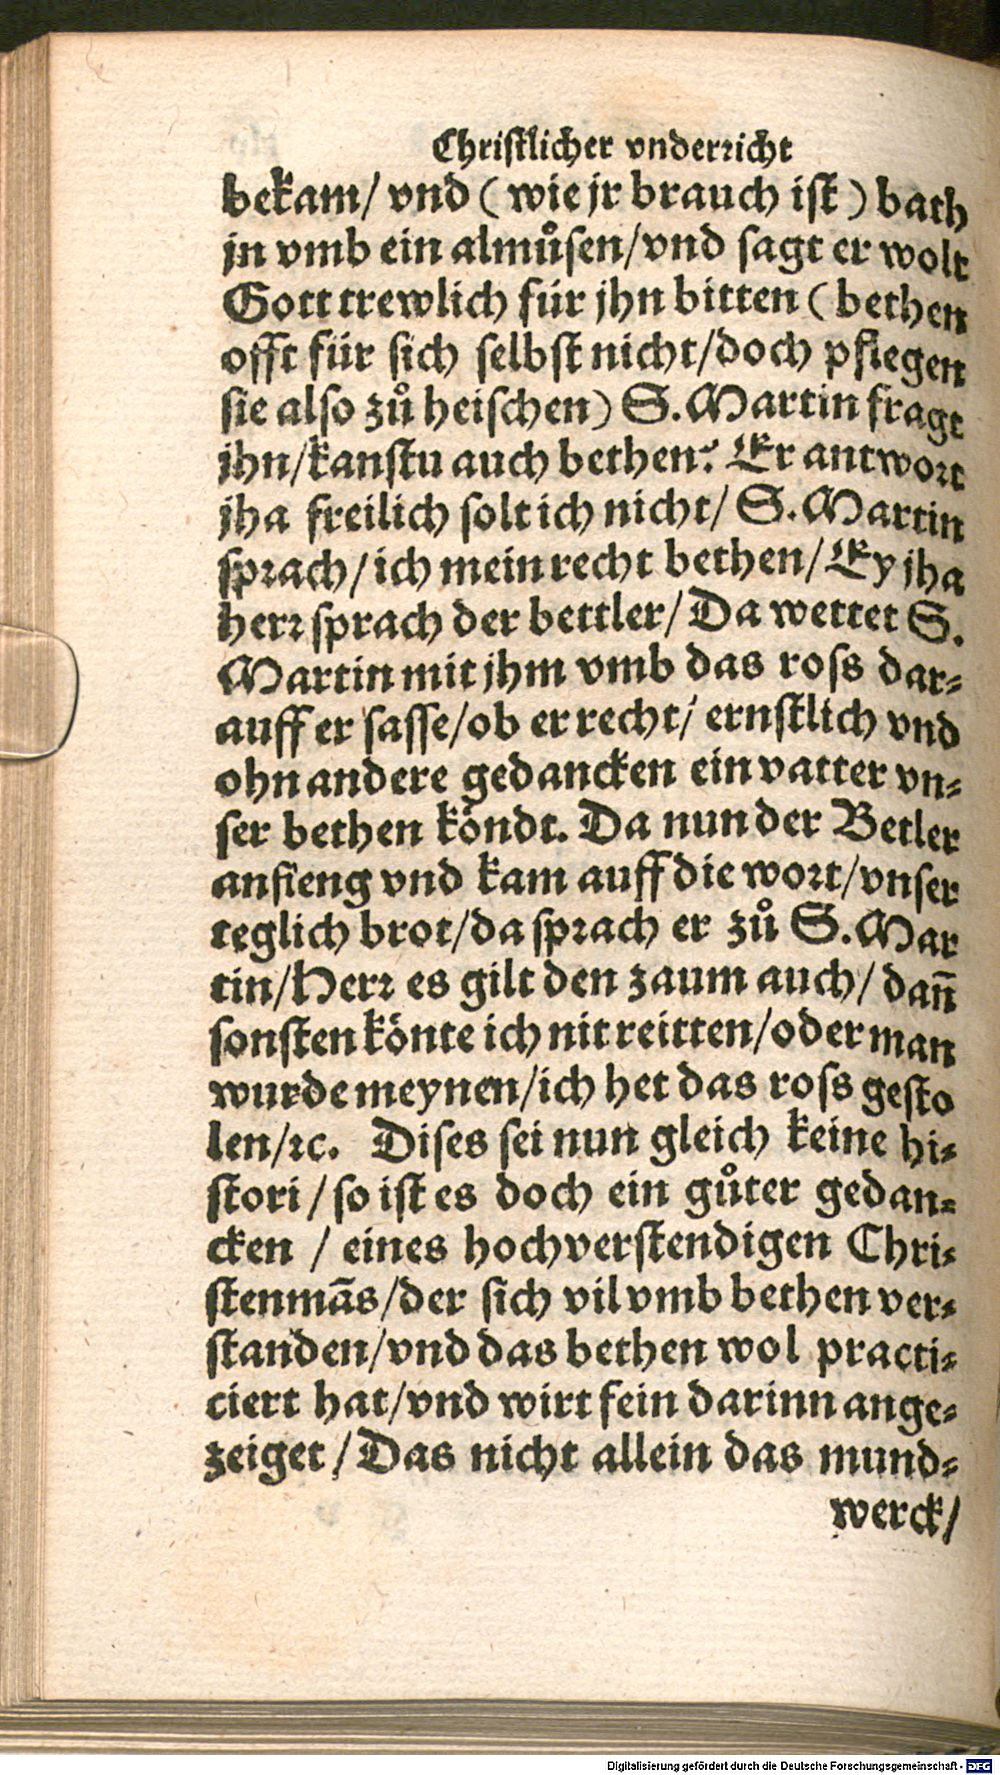 Christlicher vnderricht
bekam/ vnd ( wie jr brauch ist ) bath
jn vmb ein almůsen/vnd sagt er wolt
Gott trewlich für jhn bitten ( bethen
offt für sich selbst nicht/doch pflegen
sie also zů heischen) S. Martin fragt
jhn/kanstu auch bethen? Er antwort
jha freilich solt ich nicht/ S. Martin
sprach/ ich mein recht bethen/ Ey jha
herr sprach der bettler/ Da wettet S.
Martin mit jhm vmb das ross dar-
auff er sasse/ob er recht/ ernstlich vnd
ohn andere gedancken ein vatter vn-
ser bethen köndt. Da nun der Betler
anfieng vnd kam auff die wort/vnser
teglich brot/da sprach er zů S. Mar
tin/Herr es gilt den zaum auch/ dañ
sonsten könte ich nit reitten/oder man
wurde meynen/ich het das ross gesto
len/ꝛc. Dises sei nun gleich keine hi-
stori / so ist es doch ein gůter gedan-
cken / eines hochverstendigen Chri-
stenmãs/der sich vil vmb bethen ver-
standen/vnd das bethen wol practi-
ciert hat/vnd wirt fein darinn ange-
zeiget / Das nicht allein das mund-
werck/
Digitalisierung gefördert durch die Deutsche Forschungsgemeinschaft - DFG